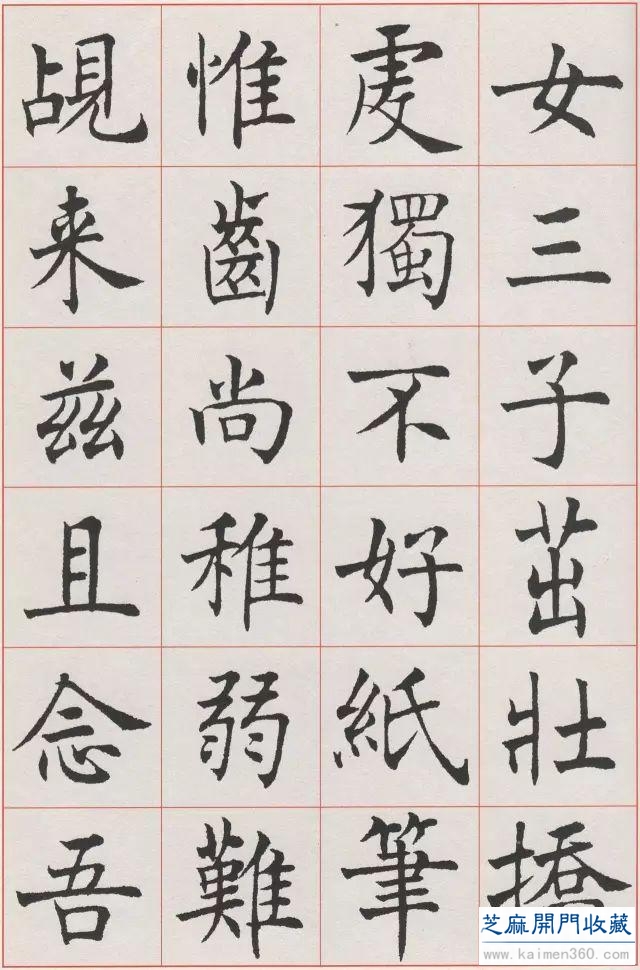 女三子茁壯撟
虔獨不好紙筆
惟齒尚稚弱難
覘来兹且念吾
芝麻開門收藏
www.kaimen360.com